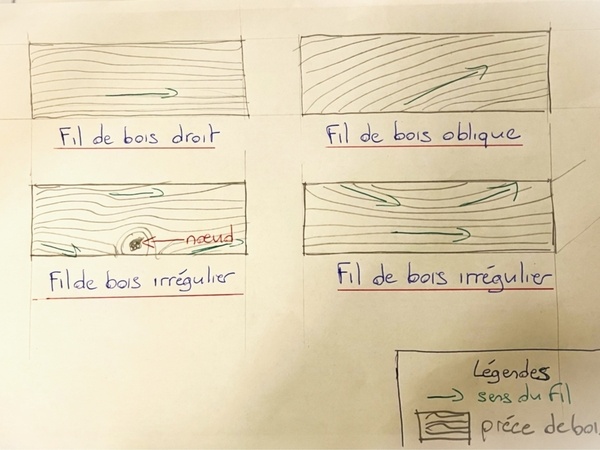 Fil de bois droit
Fil de bois oblique
nœud
Fil de bois irrégulier
Fil de bois irrégulier
Légendes
sens du fil
pièce de bois